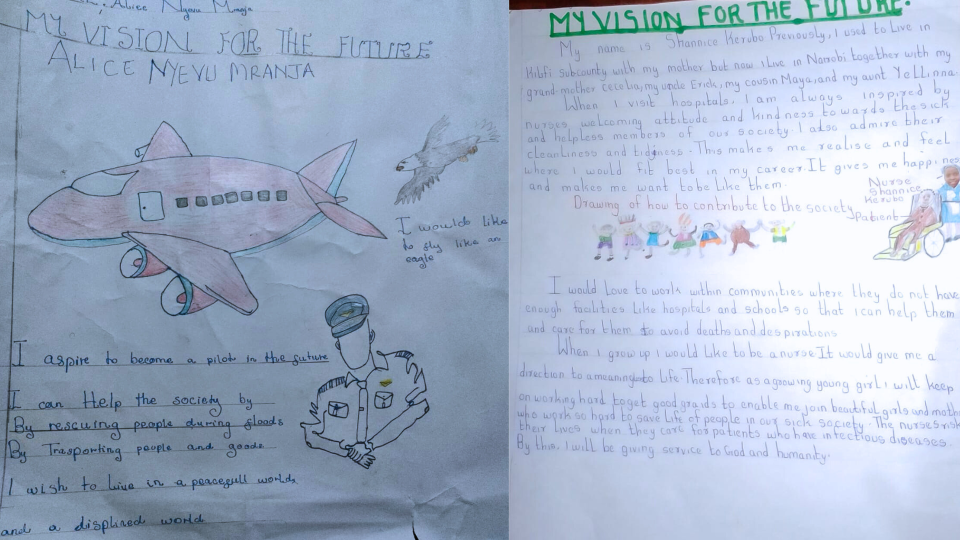 Alice Nyevu Mranja
MY VISION FOR THE FUTURE
ALICE NYEVU MRANJA
I woulds like
to fly like an
eagle
I aspire to become a pilot in the future
I can Help the society by
By rescuing people during floods
By Trasporting people and goods
I wish to live in a peacefull world
and a displined world
MY VISION FOR THE FUTURE.
My name is Shannice Kerubo Previously, I used to Live in
Kilifi subcounty with my mother but now i Live in Nairobi together with my
grand mother cecelia, my uncle Erick, my cousin Maya, and my aunt Yellinna.
When I visit hospitals, I am always inspired by
nurses welcoming attitude and kindness towards the sick
and helpless members of our society. I also admire their
cleanliness and tidiness. This makes me realise and feel
where I would fit best in my career. It gives me happines
and makes me want to be Like them.
Drawing of how to contribute to the society
Nurse
Shannice
Kerubo
Patient
I would Love to work within communities where they do not have
enough facilities Like hospitals and schools so that i can help them
and care for them to avoid deaths and despirations
When I grow up I would Like to be a nurse. It would give me a
direction to a meaning to Life. Therefore as a growing young girl I will keep
on working hard to get good graids to enable me join beautiful girls and moth
who work so hard to save Life of people in our sick society. The nurses risk
their Lives when they care for patients who have infectious diseases.
By this, I will be giving service to God and humanity.